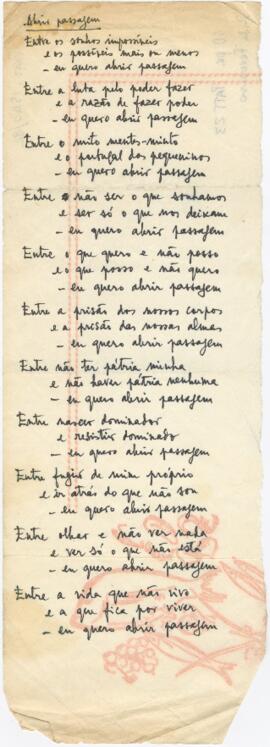 Abrir passagem
Entre os sonhos impossíveis
e os possíveis mais ou menos
- eu quero abrir passagem
Entre a luta pelo poder fazer
e a razão de fazer poder
- eu quero abrir passagem
Entre o mito mentes-minto
e o portugal dos pequeninos
- eu quero abrir passagem
Entre não ser o que sonhamos
e ser só o que nos deixam
- eu quero abrir passagem
Entre o que quero e não posso
e o que posso e não quero
- eu quero abrir passagem
Entre a prisão dos nossos corpos
e a prisão das nossas almas
- eu quero abrir passagem
Entre não ter pátria minha
e não haver pátria nenhuma
- eu quero abrir passagem
Entre nascer dominador
e resistir dominado
- eu quero abrir passagem
Entre fugir de mim próprio
e ir atrás do que não sou
- eu quero abrir passagem
Entre olhar e não ver nada
e ver só o que não está
- eu quero abrir passagem
Entre a vida que não vivo
e a que fica por viver
- eu quero abrir passagem